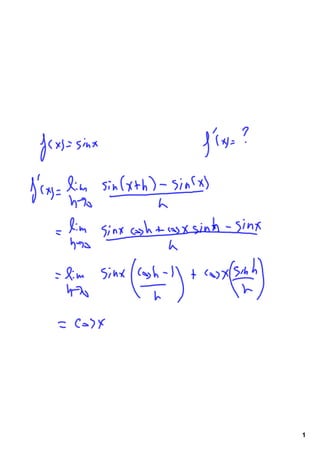 f(x)= sinx f'(x)= ?
f'(x)= lim h→0 (sin(x+h) - sin(x))/h
= lim h→0 (sinx cosh + cosx sinh - sinx)/h
= lim h→0 sinx ((cosh - 1)/h) + cosx (sinh/h)
= cosx
1